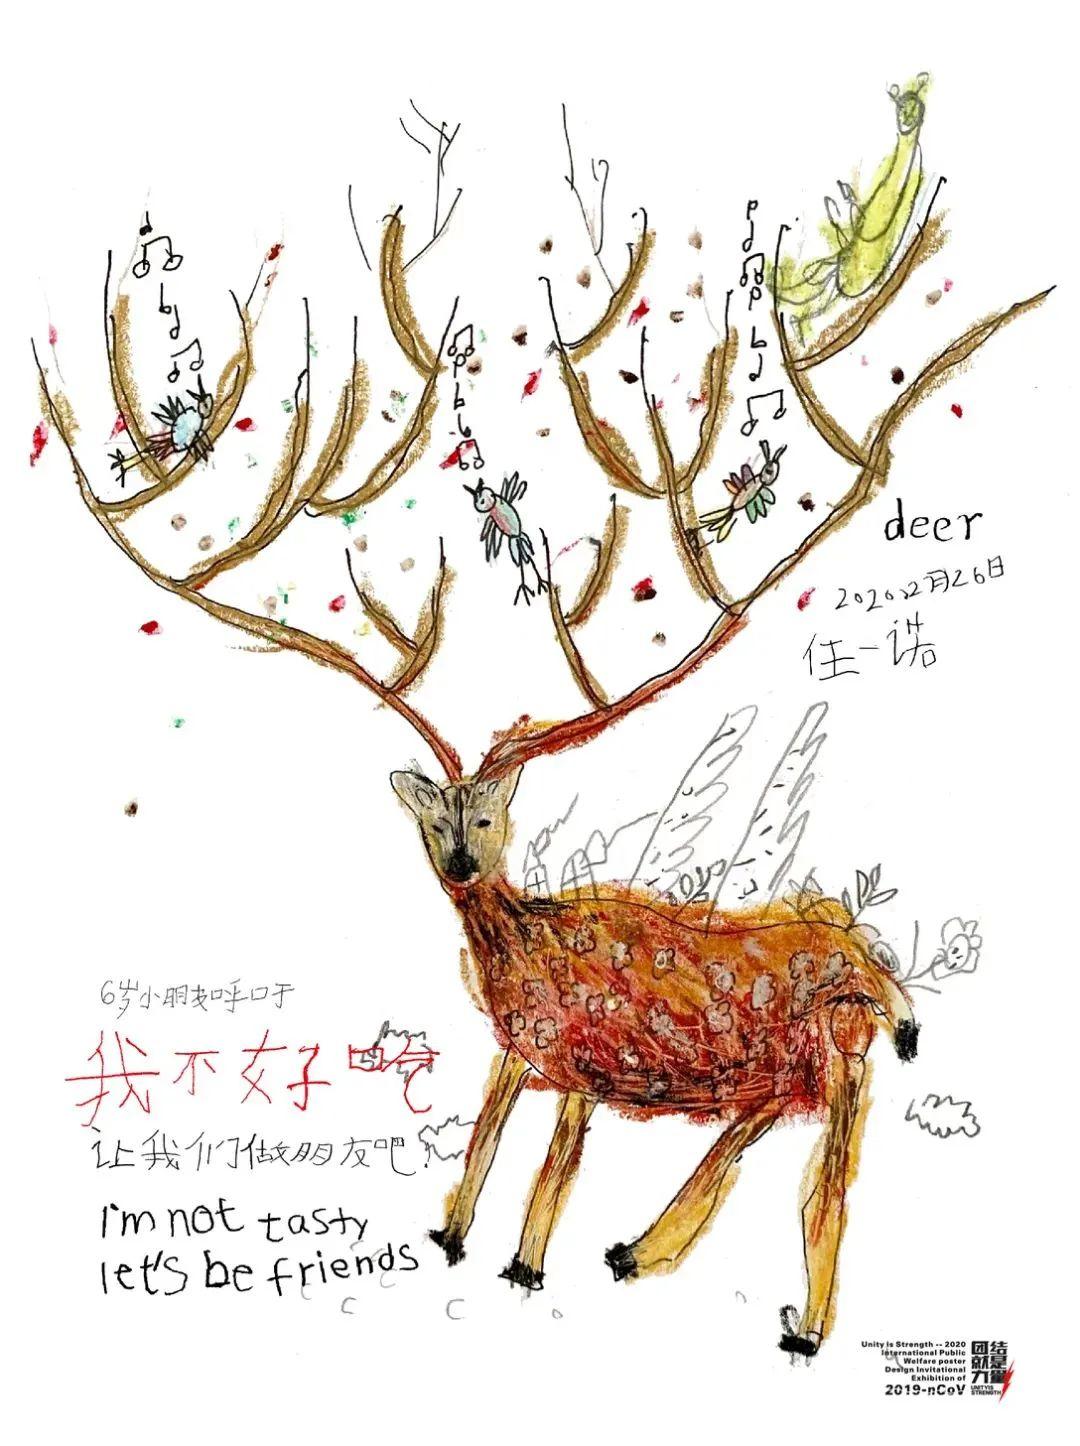 deer
2020.2月26日
任一诺
6岁小朋友呼吁
我不好吃
让我们做朋友吧!
i'm not tasty
let's be friends
Unity is Strength -- 2020
International Public
Welfare poster
Design Invitational
Exhibition of
2019-nCoV
团结
就是
力量
UNITY IS
STRENGTH